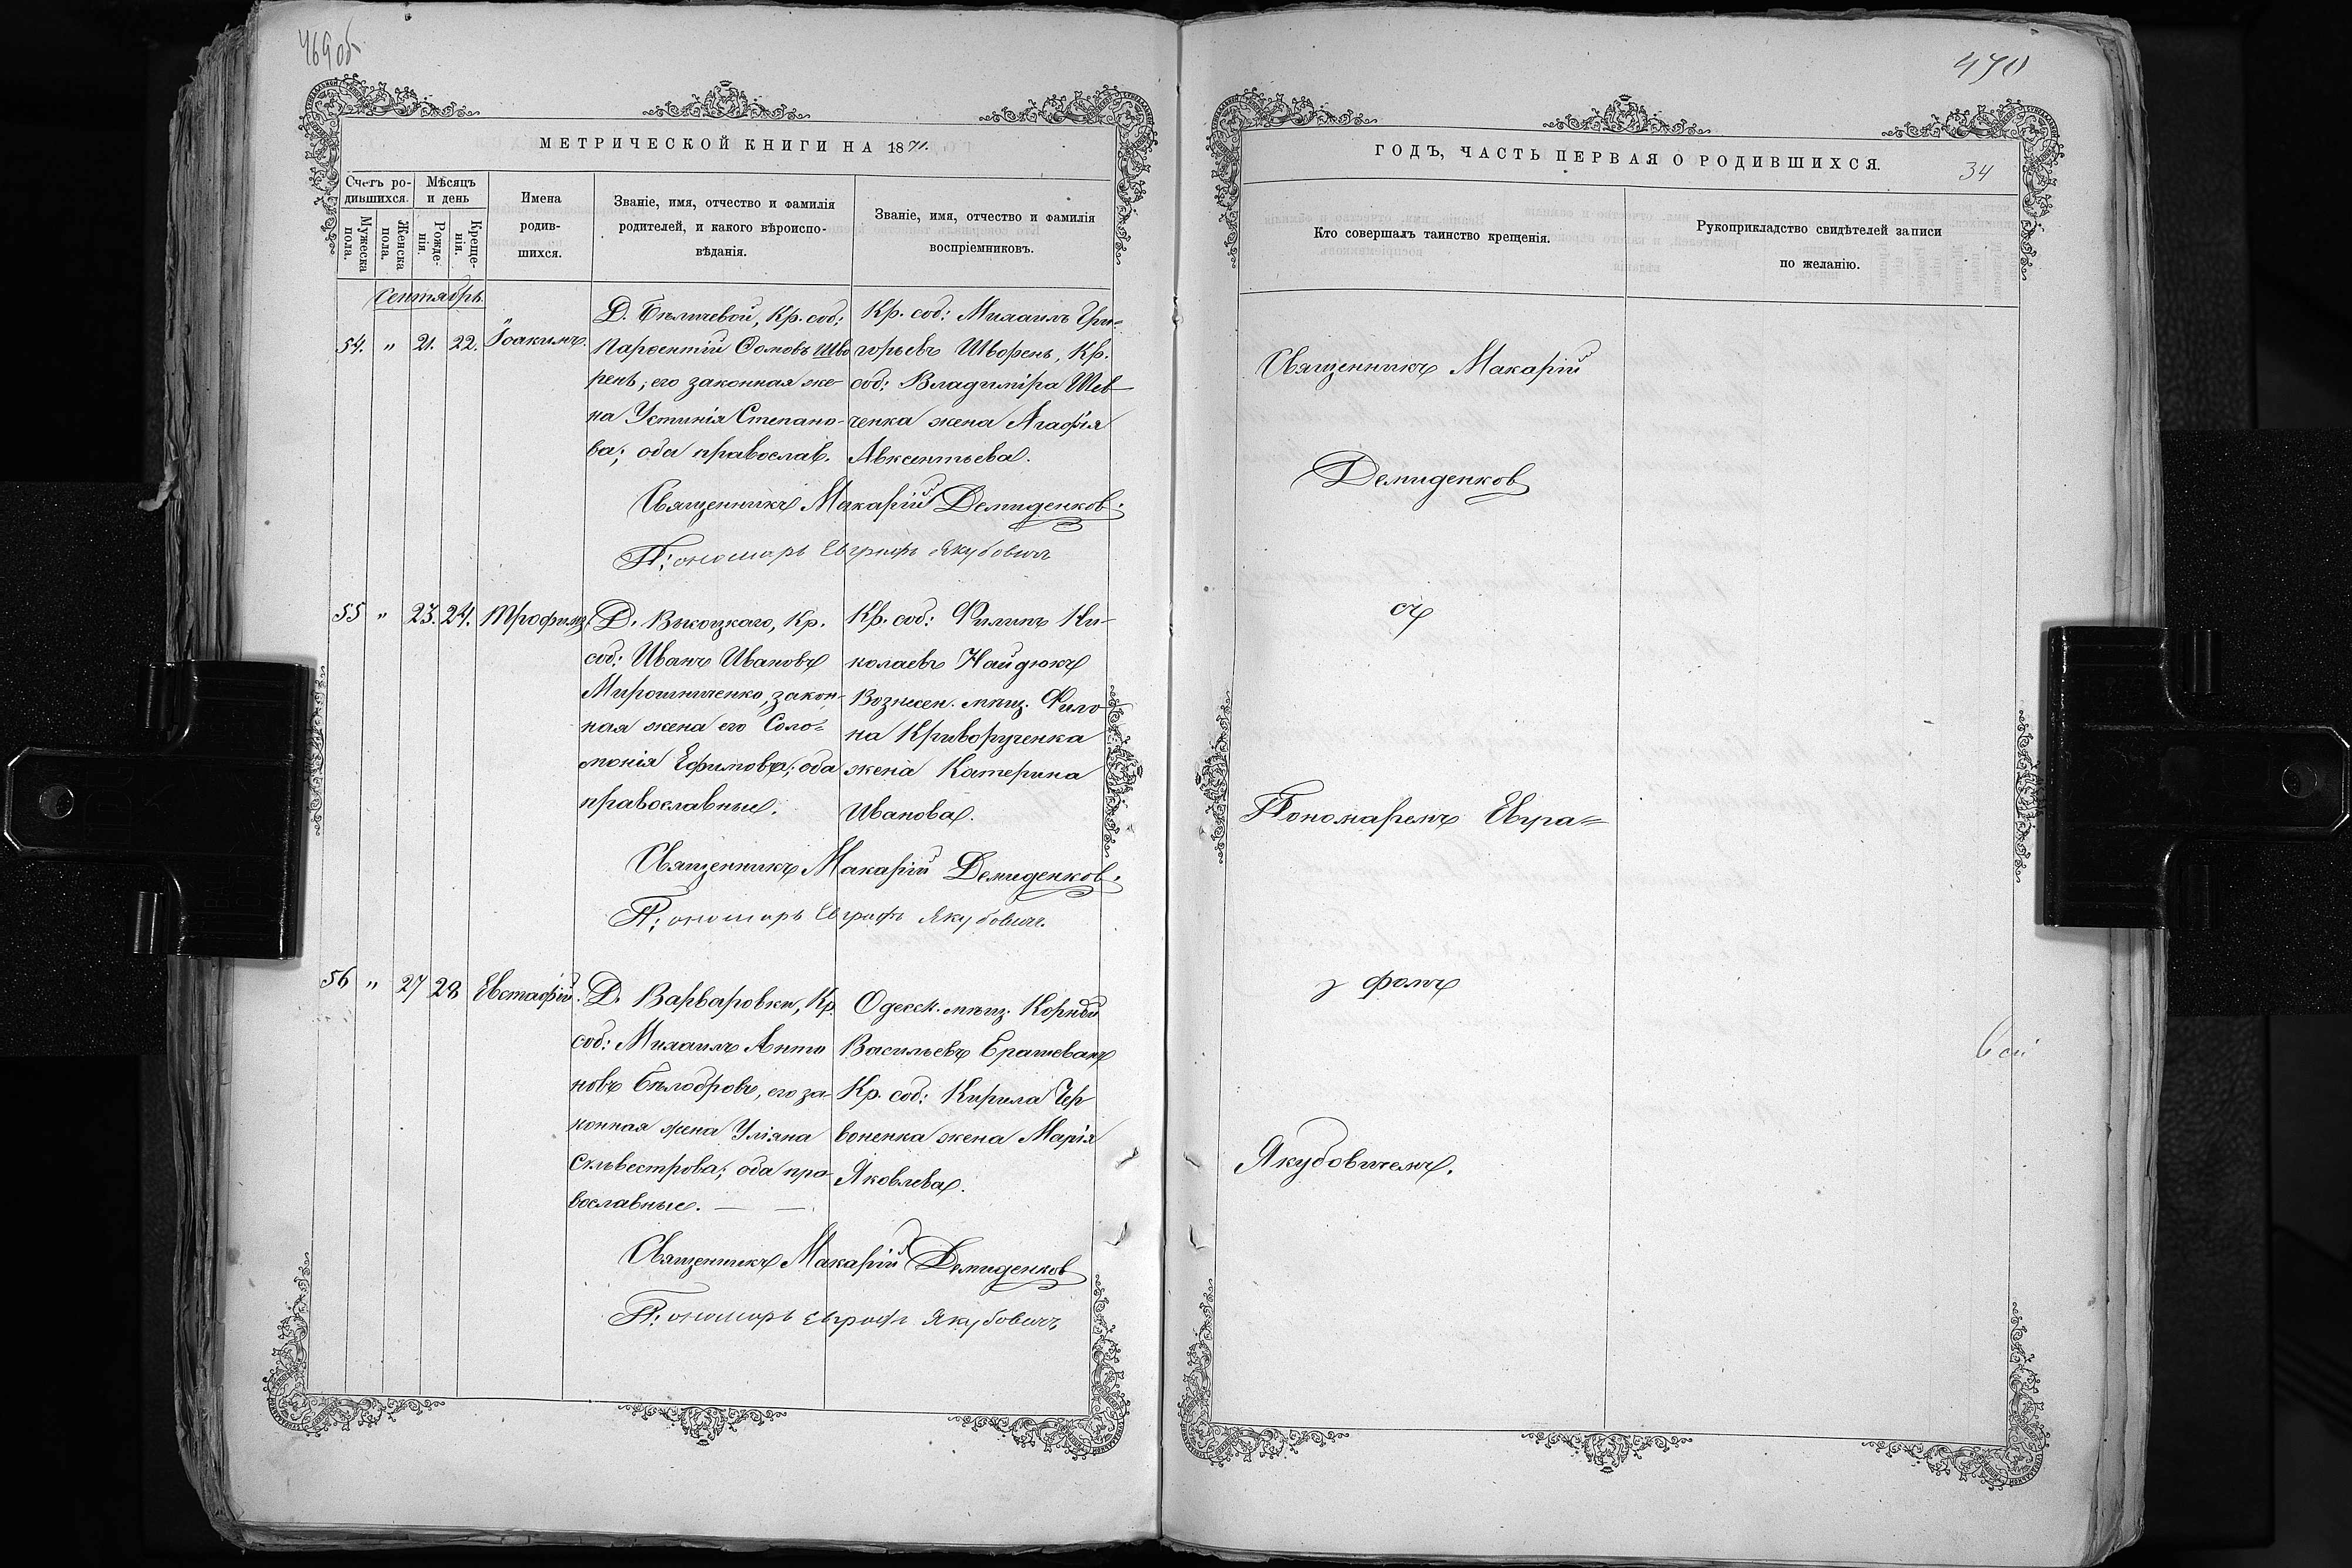 469 об
МЕТРИЧЕСКОЙ КНИГИ НА 1871.
Счетъ ро-
дившихся.
Мѣсяцъ
и день
Мужеска
пола.
Женска
пола.
Рожде-
нія.
Креще-
нія.
Имена
родив-
шихся.
Званіе, имя, отчество и фамилія
родителей, и какого вѣроиспо-
вѣданія.
Званіе, имя, отчество и фамилія
воспріемниковъ.
Сентябрь
54. " 21. 22. Іоакимъ.
Д. Бѣличевой, Кр. соб:
Парѳентій Ѳомовъ Шво
рень; его законная же-
на Устинія Степано-
ва; оба православ.
Кр. соб: Михаилъ Гри=
горьевъ Шворень, Кр.
соб: Владиміра Шев
ченка жена Агафія
Авксентьева.
Священникъ Макарій Демиденков.
П: ономарь Евграфъ Якубовичъ
55 " 23. 24. Трофимъ.
Д. Высоцкаго, Кр.
соб: Иванъ Ивановъ
Мирошниченко, закон-
ная жена его Соло=
монія Ефимова; оба
православные.
Кр. соб: Филипъ Ни-
колаевъ Найдюкъ
Вознесен. мѣщ. Фило
на Криворученка
жена Катерина
Иванова.
Священникъ Макарій Демиденков.
П: ономарь Евграфъ Якубовичъ.
56 " 27 28 Евстафій.
Д. Варваровки, Кр.
соб: Михаилъ Анто
новъ Бѣлобровъ, его за-
конная жена Уліяна
Сильвестрова; оба пра-
вославные.
Одесск. мѣщ. Корній
Васильевъ
Кр. соб: Кирила Чер
воненка жена Марія
Яковлева.
Священникъ Макарій Демиденков
П: ономарь Евграфъ Якубовичъ
470
ГОДЪ, ЧАСТЬ ПЕРВАЯ О РОДИВШИХСЯ.
34
Кто совершалъ таинство крещенія.
Рукоприкладство свидѣтелей записи
по желанію.
Священникъ Макарій
Демиденков
съ
Пономаремъ Евгра=
фомъ
Якубовичемъ.